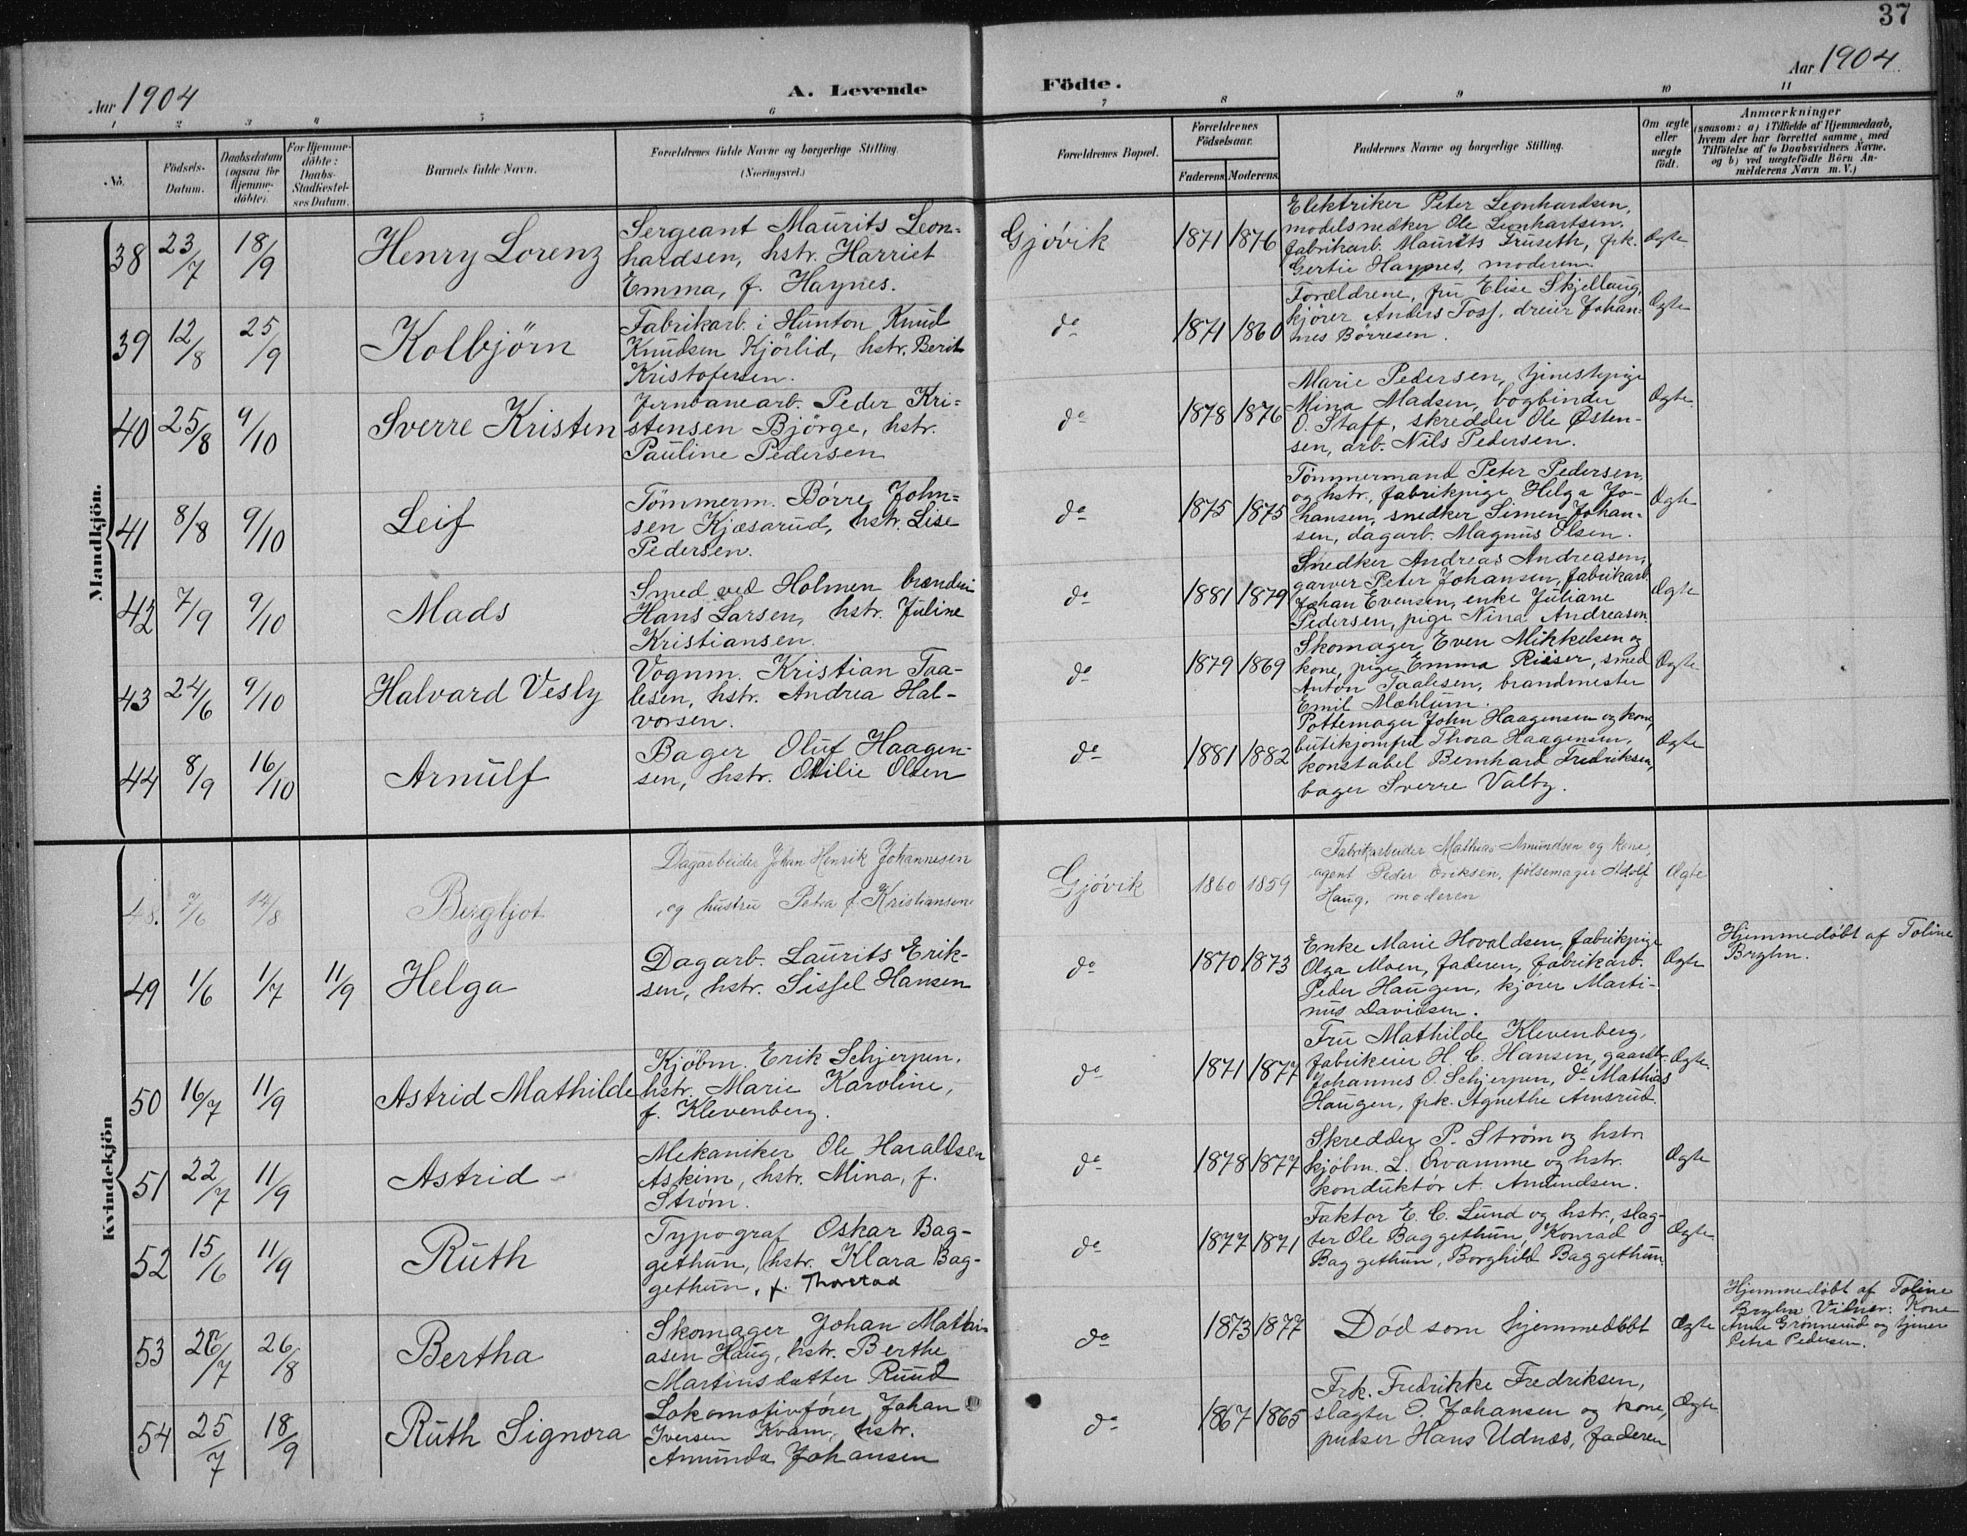 37
Aar 1904
A. Levende Födte.
Aar 1904
1 2 3 4 5 6 7 8 9 10 11
No.
Födsels-Datum.
Daabsdatum (ogsaa for Hjemmedöbte).
For Hjemmedöbte: Daabs-Stadfæstelses Datum.
Barnets fulde Navn.
Forældrenes fulde Navne og borgerlige Stilling.
(Næringsvei.)
Forældrenes Bopæl.
Forældrenes Födselsaar.
Faderens. Moderens.
Faddernes Navne og borgerlige Stilling.
Om ægte eller uægte födt.
Anmærkninger
(saasom: a) i Tilfælde af Hjemmedaab,
hvem der har forrettet samme, med
Tilföielse af to Daabsvidners Navne,
og b) ved uægtefödte Börn An-
melderens Navn m. V.)
Mandkjön.
38 23/7 18/9 Henry Lorenz
Sergeant Maurits Leon-
hardsen, hstr. Harriet
Emma, f. Haynes.
Gjövik 1871 1876
Elektriker Peter Leonhardsen,
modelsnedker Ole Leonhartsen,
fabrikarb. Maurits Fruseth, frk.
Gertie Haynes, moderen
Ægte
39 12/8 25/9 Kolbjörn
Fabrikarb. i Hunton Knud
Knudsen Kjörlid, hstr. Berit
Kristofersen.
do 1871 1860
Forældrene, fru Elise Skjellaug,
kjörer Anders Foss, dreier Johan-
nes Börresen.
Ægte
40 25/8 9/10 Sverre Kristen
Jernbanearb. Peder Kri-
stensen Björge, hstr.
Pauline Pedersen
do 1878 1876
Marie Pedersen, tjenestepige
Mina Madsen, bogbinder
O. Staff, skredder Ole Østen-
sen, arb. Nils Pedersen.
Ægte
41 8/8 9/10 Leif
Tömmerm. Börre John-
sen Kjæsarud, hstr. Lise
Pedersen.
do 1875 1875
Tömmermand Peter Pedersen
og hstr, fabrikpige Helga Jo-
hansen, snedker Simen Johan-
sen, dagarb. Magnus Olsen.
Ægte
42 7/9 9/10 Mads
Smed ved Holmen brænderi
Hans Larsen, hstr. Juline
Kristiansen.
do 1881 1879
Snedker Andreas Andreasen,
garver Peter Johansen, fabrikarb.
Johan Evensen, enke Juliane
Pedersen, pige Nina Andreasen
Ægte
43 24/6 9/10 Halvard Vesly
Vognm. Kristian Taa-
lesen, hstr. Andrea Hal-
vorsen.
do 1879 1869
Skomager Even Mikkelsen og
kone, pige Emma Riiser, smed
Anton Taalesen, brandmester
Emil Mæhlum.
Ægte
44 8/9 16/10 Arnulf
Bager Oluf Haagen-
sen, hstr. Otilie Olsen
do 1881 1882
Pottemager John Haagensen og kone,
butikjomfru Thora Haagensen,
konstabel Bernhard Fredriksen,
bager Sverre Valby.
Ægte
Kvindekjön
48. 7/6 14/8 Bergljot
Dagarbeider Johan Henrik Johannesen
og hustru Petra f. Kristiansen
Gjövik 1860 1859
Fabrikarbeider Mathias Amundsen og kone,
agent Peder Eriksen, pölsemager Adolf
Haug, moderen
Ægte
49 1/6 1/7 11/9 Helga
Dagarb. Laurits Erik-
sen, hstr. Sissel Hansen
do 1870 1873
Enke Marie Hovaldsen, fabrikpige
Olga Moen, faderen, fabrikarb.
Peder Haugen, kjörer Marti-
nus Davidsen.
Ægte
Hjemmedöbt af Toline
Bryhn.
50 16/7 11/9 Astrid Mathilde
Kjöbm. Erik Schjerpen,
hstr. Marie Karoline,
f. Klevenberg.
do 1871 1877
Fru Mathilde Klevenberg,
fabrikeier H. C. Hansen, gaardbr.
Johannes O. Schjerpen, do Mathias
Haugen, frk. Agnethe Amsrud.
Ægte
51 22/7 11/9 Astrid
Mekaniker Ole Haraldsen
Askim, hstr. Mina, f.
Ström.
do 1878 1877
Skredder P. Ström og hstr
kjöbm. L. Ovamme og hstr.
konduktör A. Amundsen.
Ægte
52 15/6 11/9 Ruth
Typograf Oskar Bag-
gethun, hstr. Klara Bag-
gethun, f. Thorstad
do 1877 1871
Faktor E. C. Lund og hstr., slag-
ter Ole Baggethun, Konrad
Baggethun, Borghild Baggethun.
Ægte
53 26/8 Bertha
Skomager Johan Mathi-
asen Haug, hstr. Berthe
Martinsdatter Ruud
do 1873 1877
Död som hjemmedöbt
Ægte
Hjemmedöbt af Toline
Bryhn Vidner: Kone
Anne Grönnerud og tjener
Petra Pedersen.
54 25/7 18/9 Ruth Signora
Lokomotivförer Johan
Iversen Kvam, hstr.
Amunda Johansen
do 1867 1865
Frk. Fredrikke Fredriksen,
slagter O. Johansen og kone,
pudser Hans Udnæs, faderen
Ægte